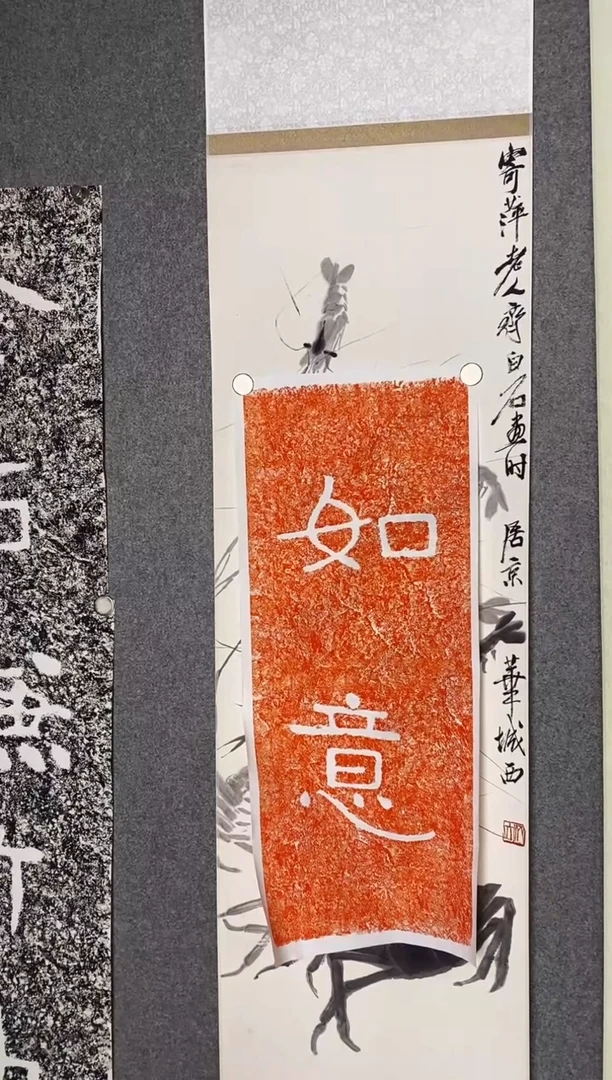 寄萍老人齊白石画时居京華城西
如意
無